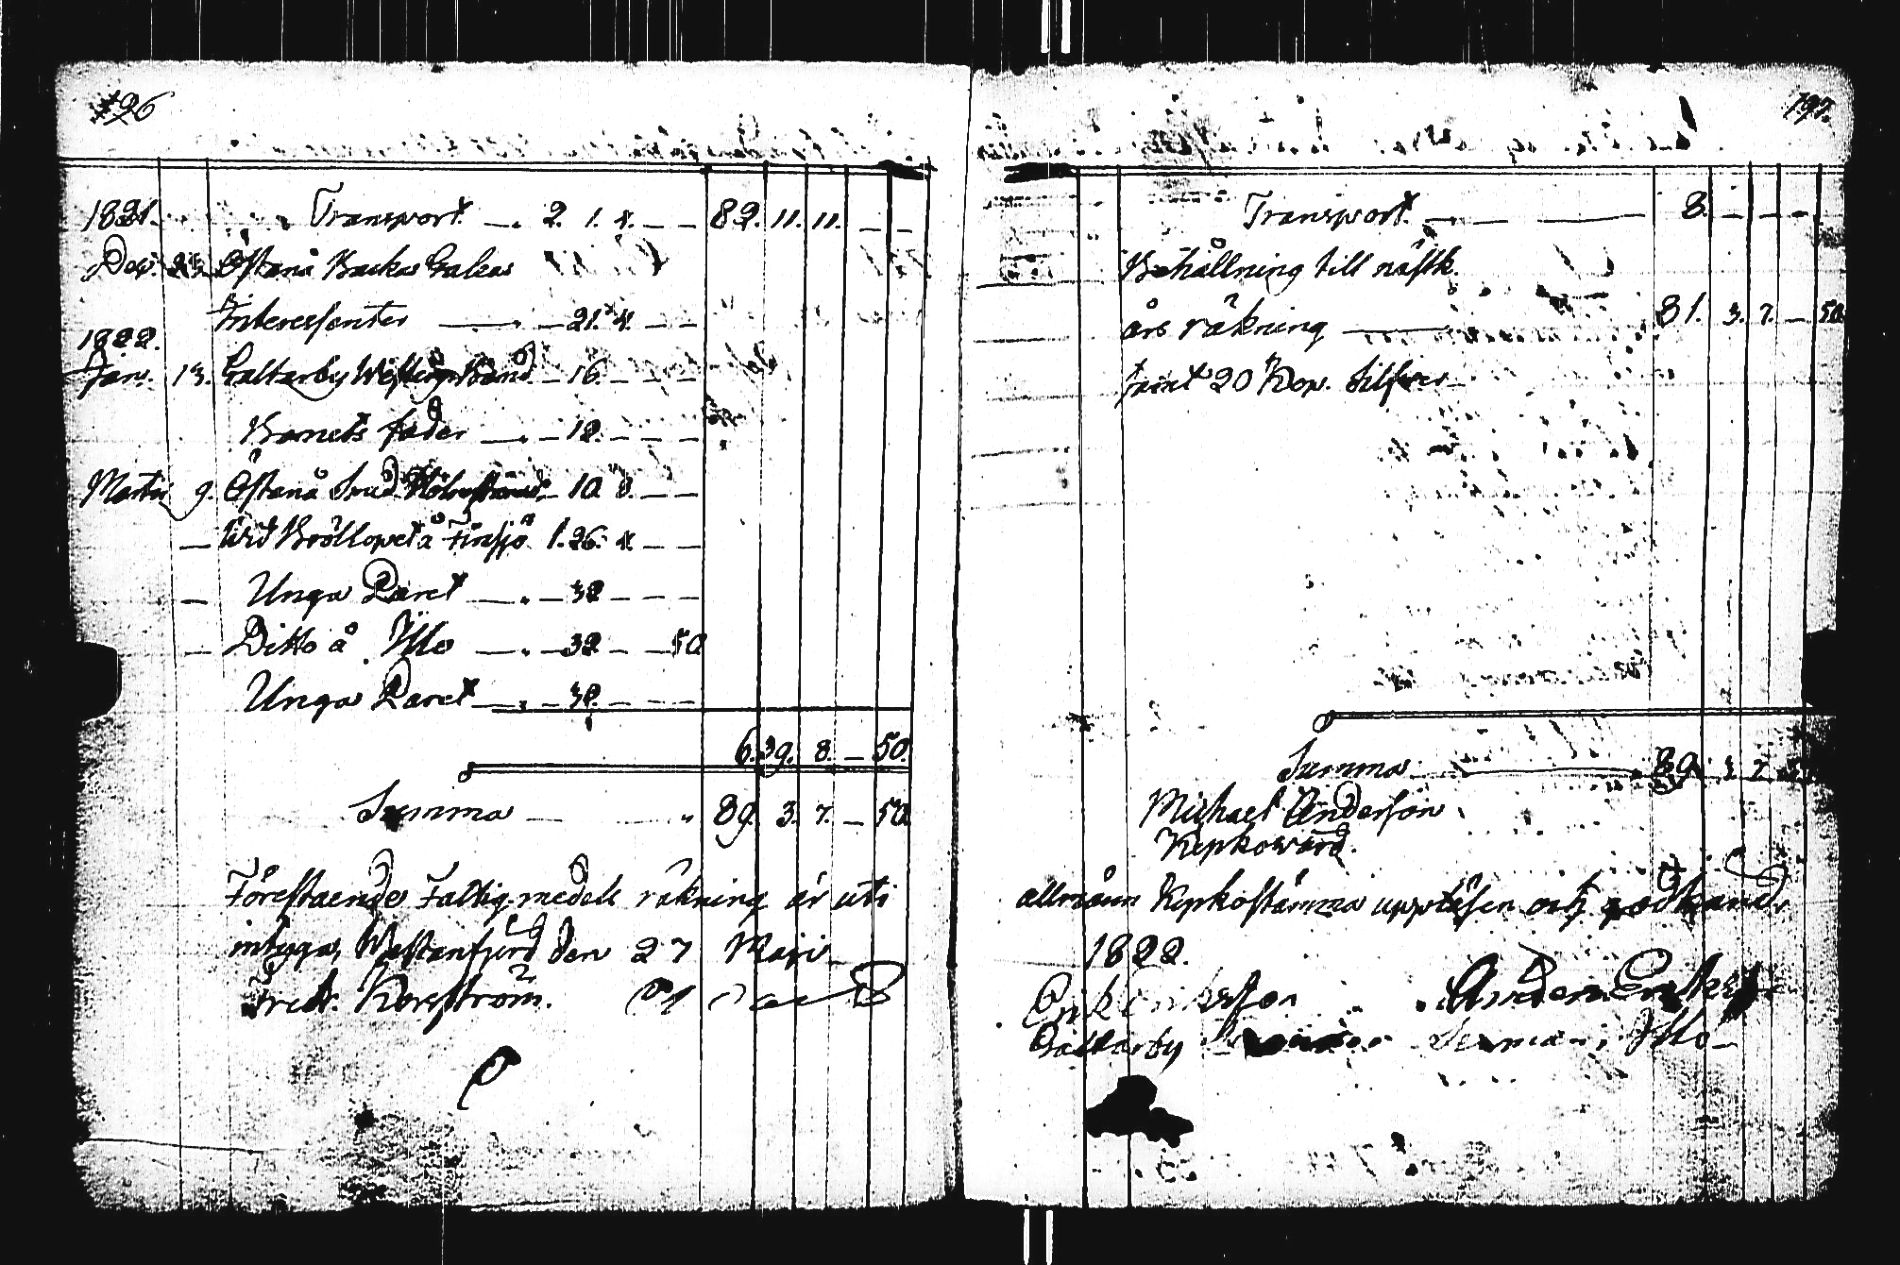 126
1821. Transport — . 2. 1. 4. — — 82. 11. 11. — —
Dec. 25. Östanå Backas Galeas
Interessenter — . — 21. 4. — —
1822.
Jan. 13. Galtarby Westergårds — 16. — — —
Barnets fader — . — 12. — — —
Martii 9. Östanå Smed — 10. 8. — —
— Wid Bröllopet å Finsjö 1. 26. 4. — —
— Unga Paret — . — 32 — — —
— Ditto å Illo — . — 32 — — 50
Unga Paret — . — 32. — — —
6. 39. 8. — 50.
Summa — 89. 3. 7. — 50
Föreståendes Fattig-medels räkning är uti
intygar, Westanfjerd den 27 Maji
Fredr. Korsström.
197.
Transport — — 8. — — — —
Behållning till nästk.
års räkning — 81. 3. 7. — 50
samt 20 Kop. Silfver
Summa — 89. 3. 7.
Michael Anderson
Kyrkowärd.
allmän Kyrkostämma uppläsen och godkänd,
1822.
Erik Eriksson
Galtarby Illo